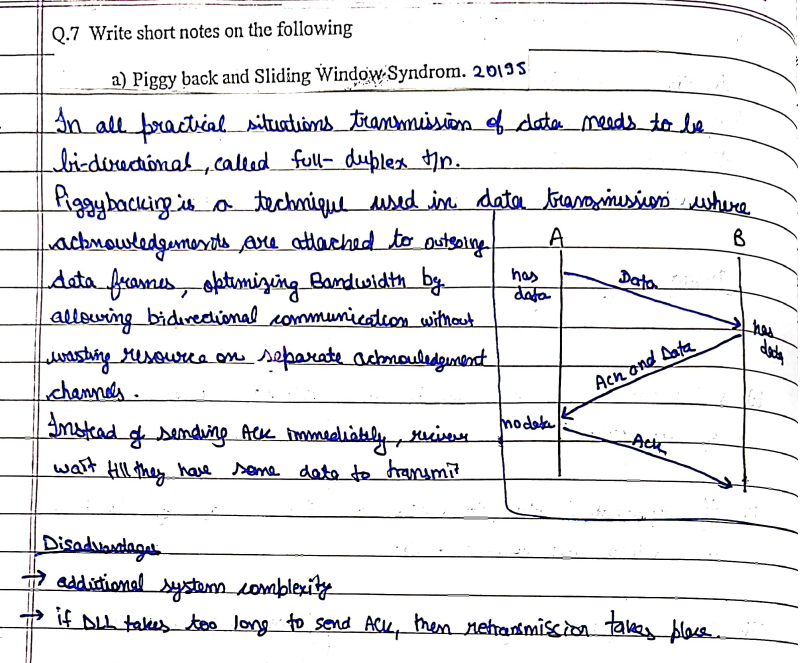 Q.7 Write short notes on the following
a) Piggy back and Sliding Window Syndrom. 2019S
In all practical situations transmission of data needs to be
bi-directional, called full-duplex t/n.
Piggybacking is a technique used in data transmission where
acknowledgements are attached to outgoing
data frames, optimizing Bandwidth by
allowing bidirectional communication without
wasting resource on separate acknowledgement
channels.
Instead of sending Ack immediately, reciever
wait till they have some data to transmit
A B
has
data
Data
has
data
Ack and Data
no data
Ack
Disadvantages
→ additional system complexity
→ if DLL takes too long to send ACK, then retransmission takes place.